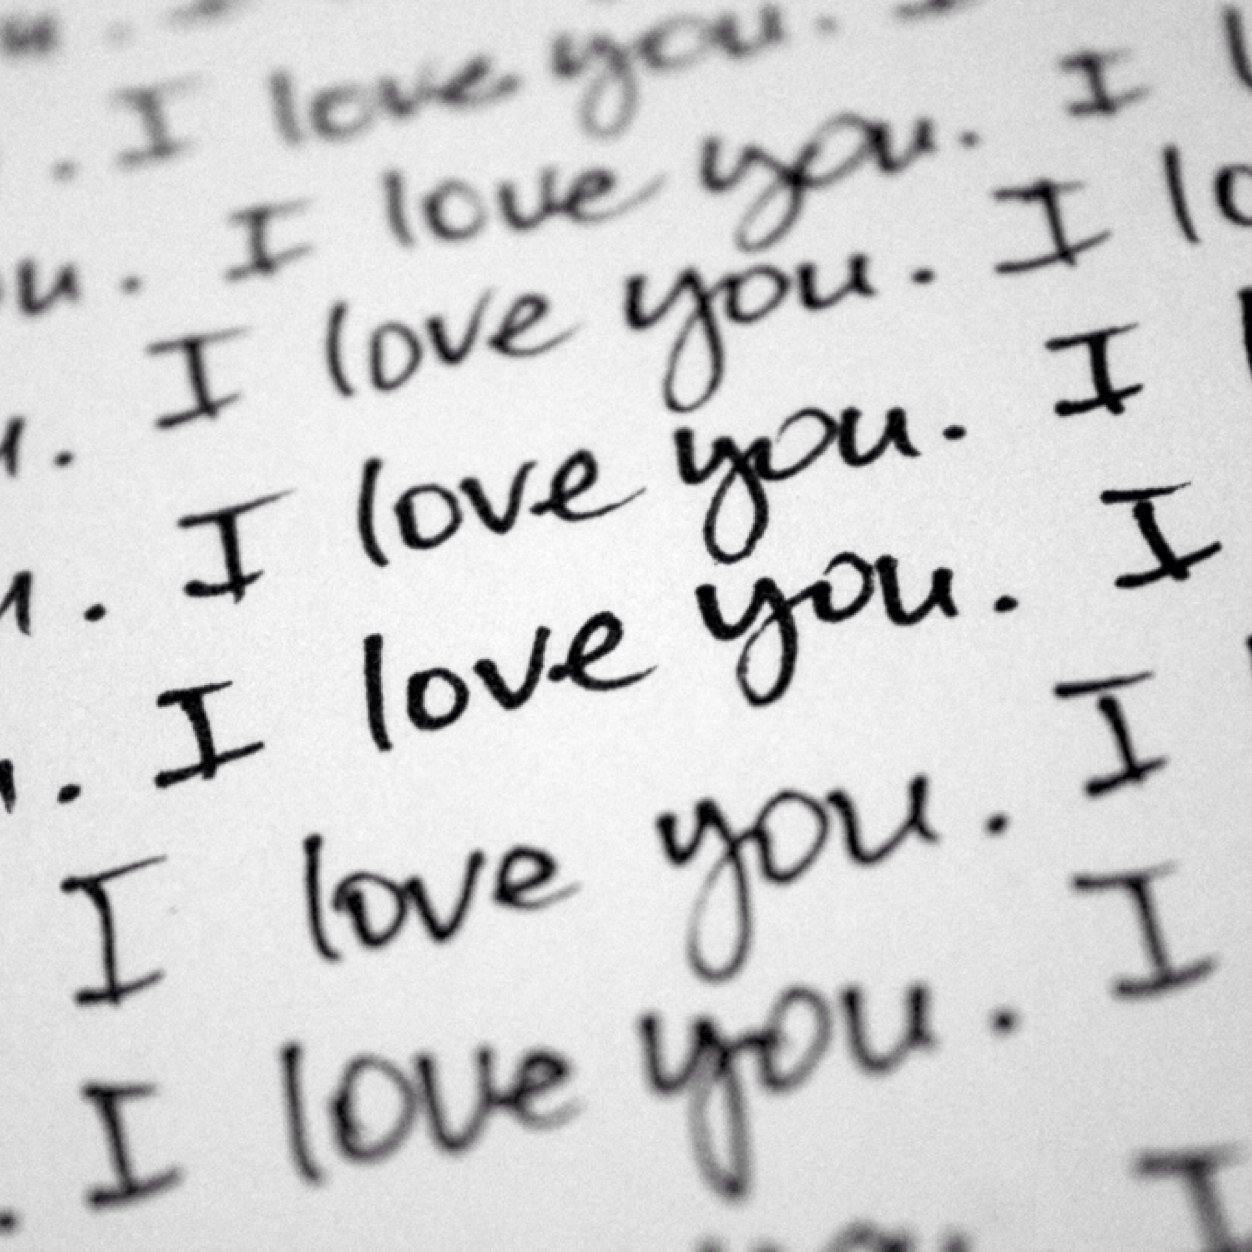 u.
. I love you.
u. I love you. I
u. I love you. I lo
u. I love you. I
u. I love you. I
I love you. I
. I love you. I
you I